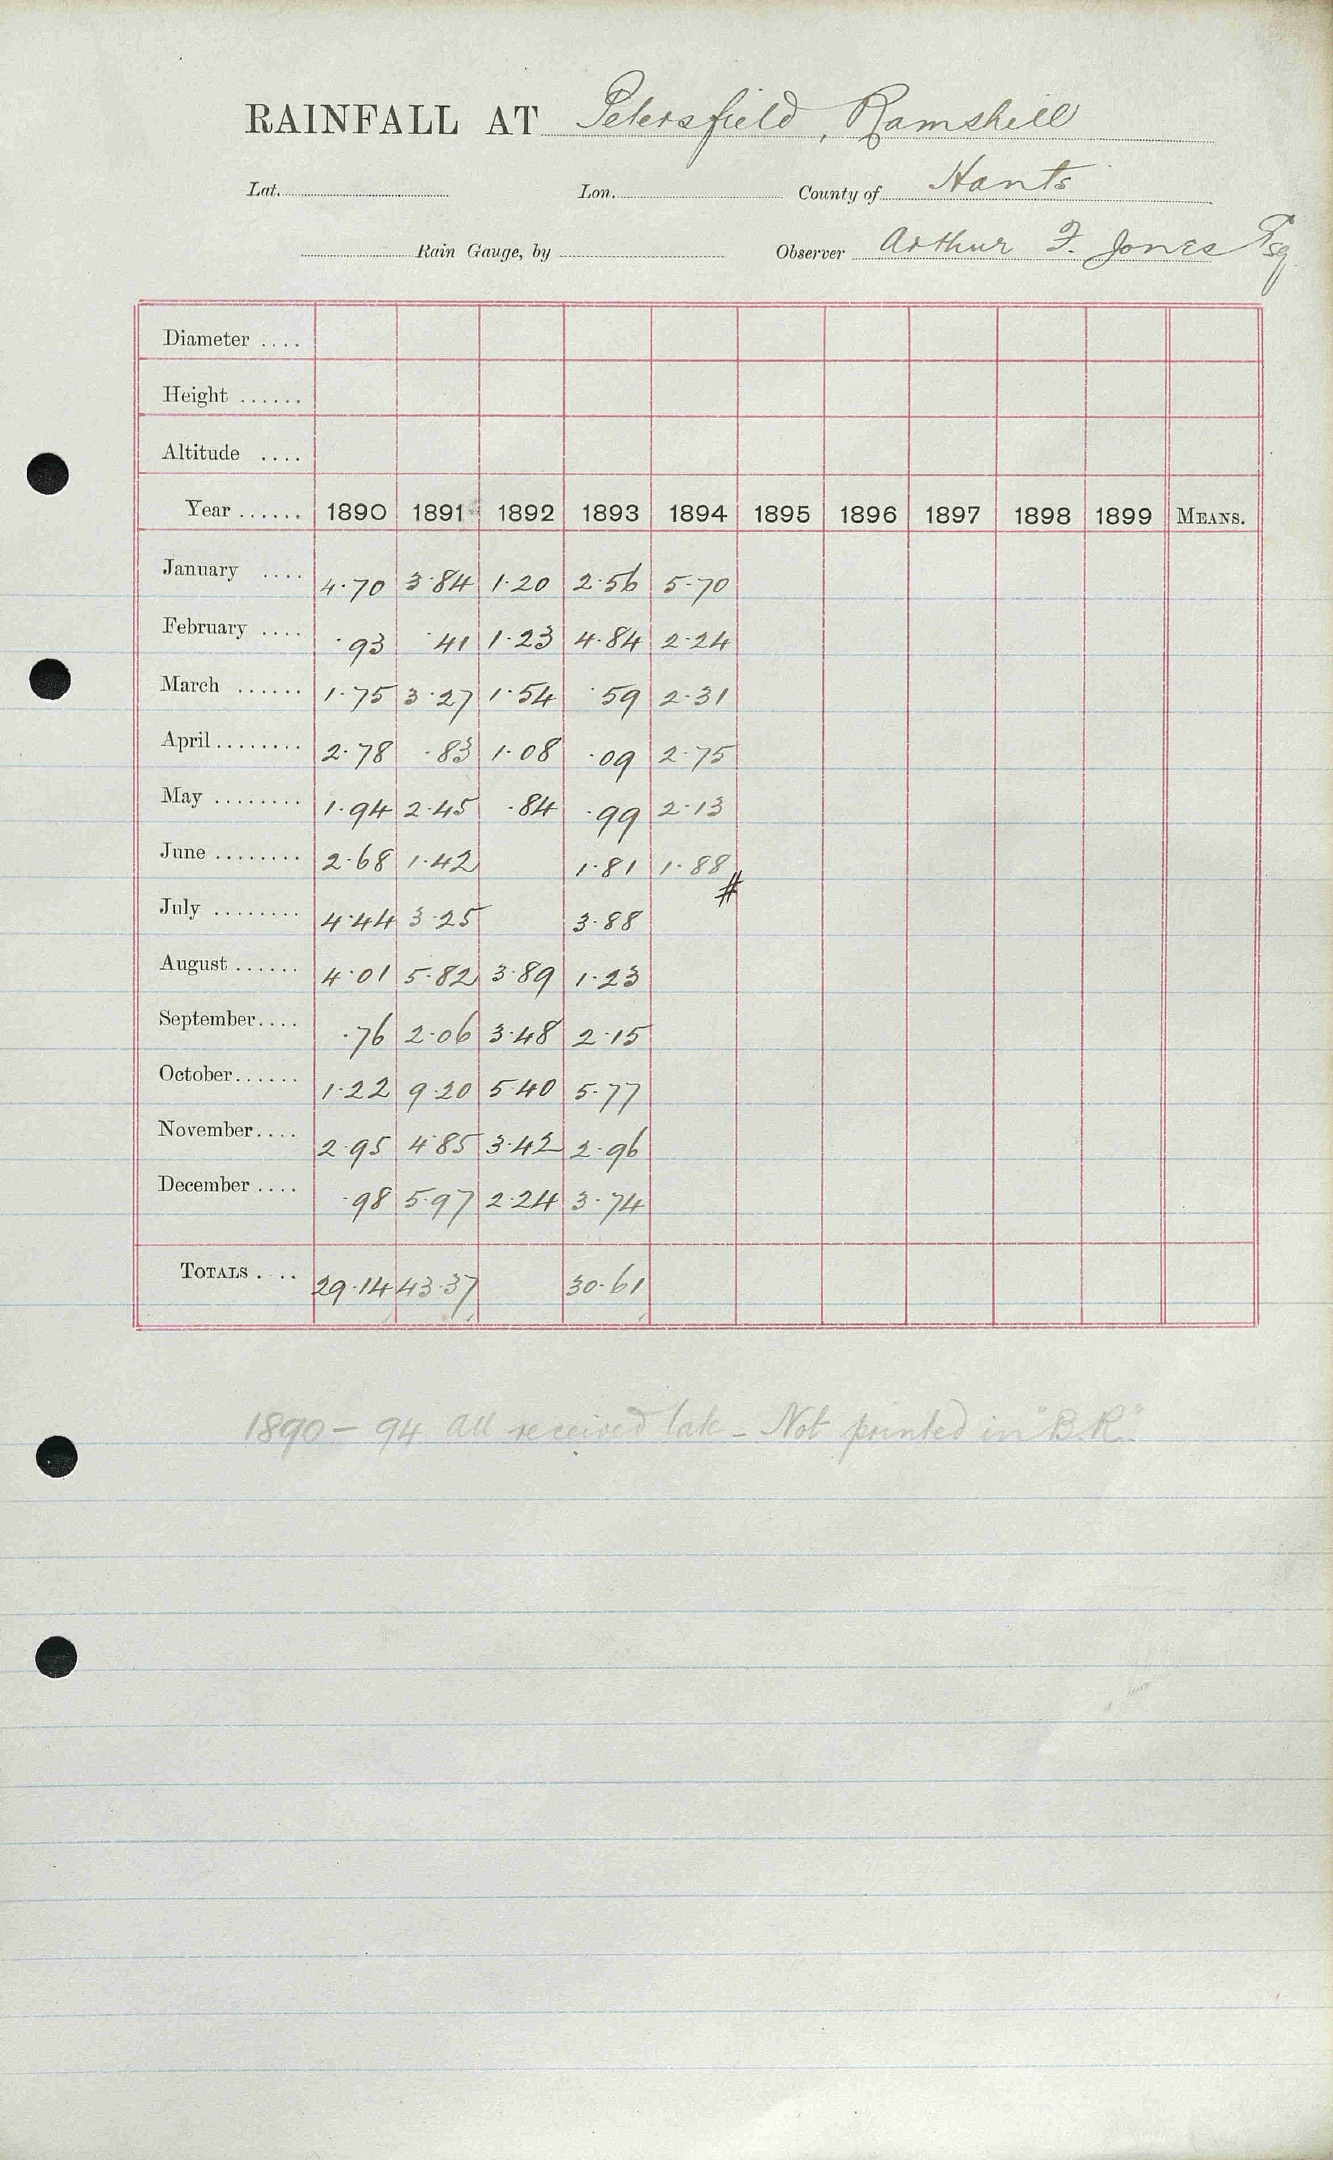 RAINFALL AT Petersfield, Ramshill
Lat. Lon. County of Hants
Rain Gauge, by Observer Arthur F. Jones Esq
Diameter ....
Height ......
Altitude ....
Year ...... 1890 1891 1892 1893 1894 1895 1896 1897 1898 1899 MEANS.
January .... 4.70 3.84 1.20 2.56 5.70
February .... .93 .41 1.23 4.84 2.24
March ...... 1.75 3.27 1.54 .59 2.31
April........ 2.78 .83 1.08 .09 2.75
May ........ 1.94 2.45 .84 .99 2.13
June ........ 2.68 1.42 1.81 1.88
#
July ........ 4.44 3.25 3.88
August ...... 4.01 5.82 3.89 1.23
September.... .76 2.06 3.48 2.15
October...... 1.22 9.20 5.40 5.77
November.... 2.95 4.85 3.42 2.96
December .... .98 5.97 2.24 3.74
TOTALS .... 29.14 43.37 30.61
1890 - 94 All received late - Not printed in "B.R."